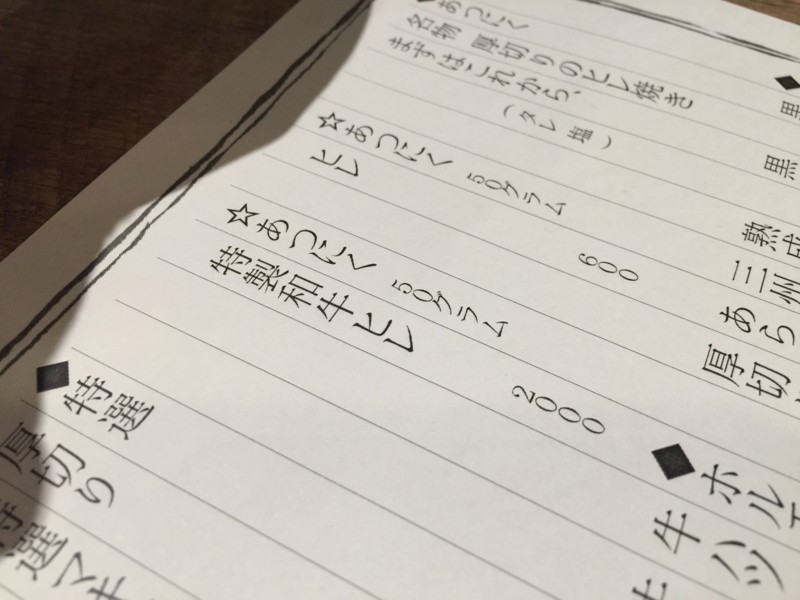 あつにく
名物 厚切りのヒレ焼き
まずはこれから、
（タレ 塩）
☆あつにく 50グラム
ヒレ 600
☆あつにく 50グラム
特製和牛ヒレ 2000
◆特選
厚切り
特選ステ
◆
黒
熟成
三州
あら
厚切
◆ホル
牛ハツ